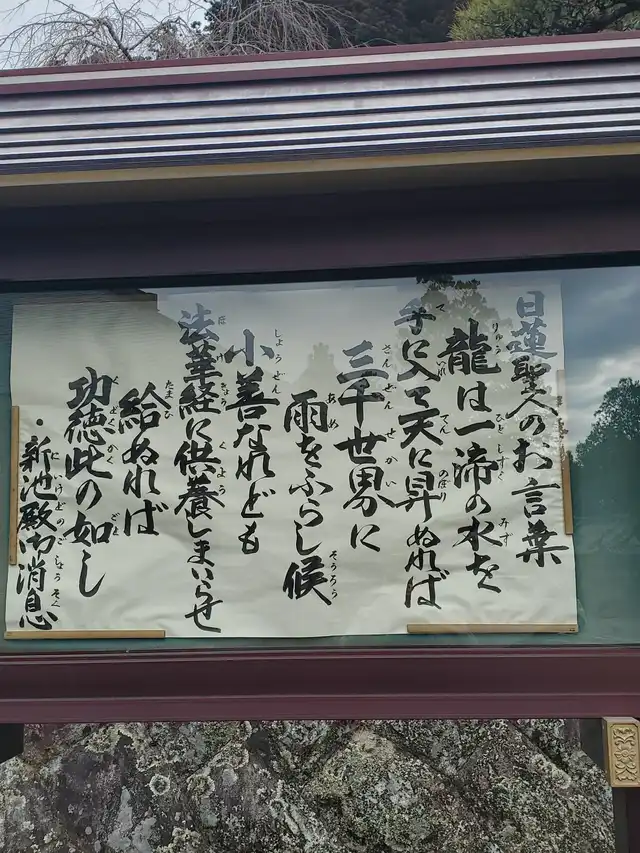 日蓮聖人のお言葉
龍は一渧の水を
手に入て天に昇ぬれば
三千世界に
雨をふらし候
小善なれども
法華経に供養しまいらせ
給ぬれば
功徳此の如し
・新池殿御消息